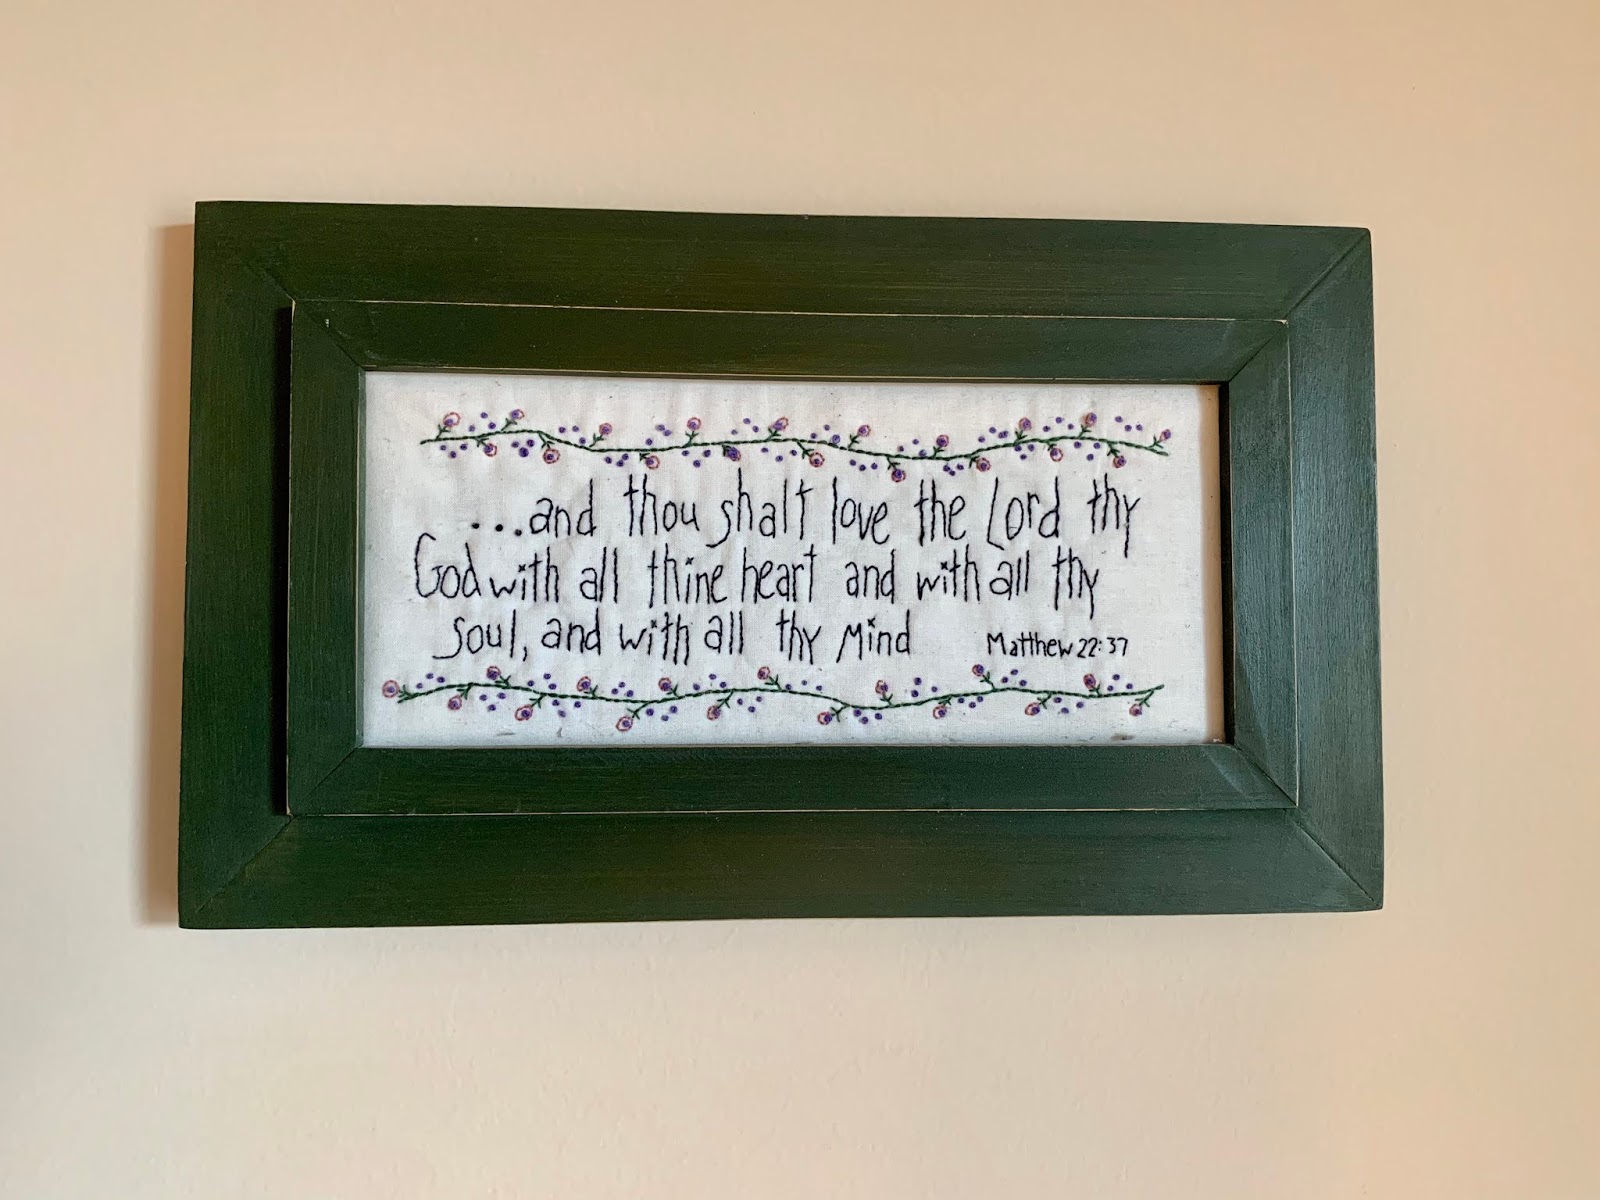 ...and thou shalt love the Lord thy
God with all thine heart and with all thy
soul, and with all thy Mind
Matthew 22:37